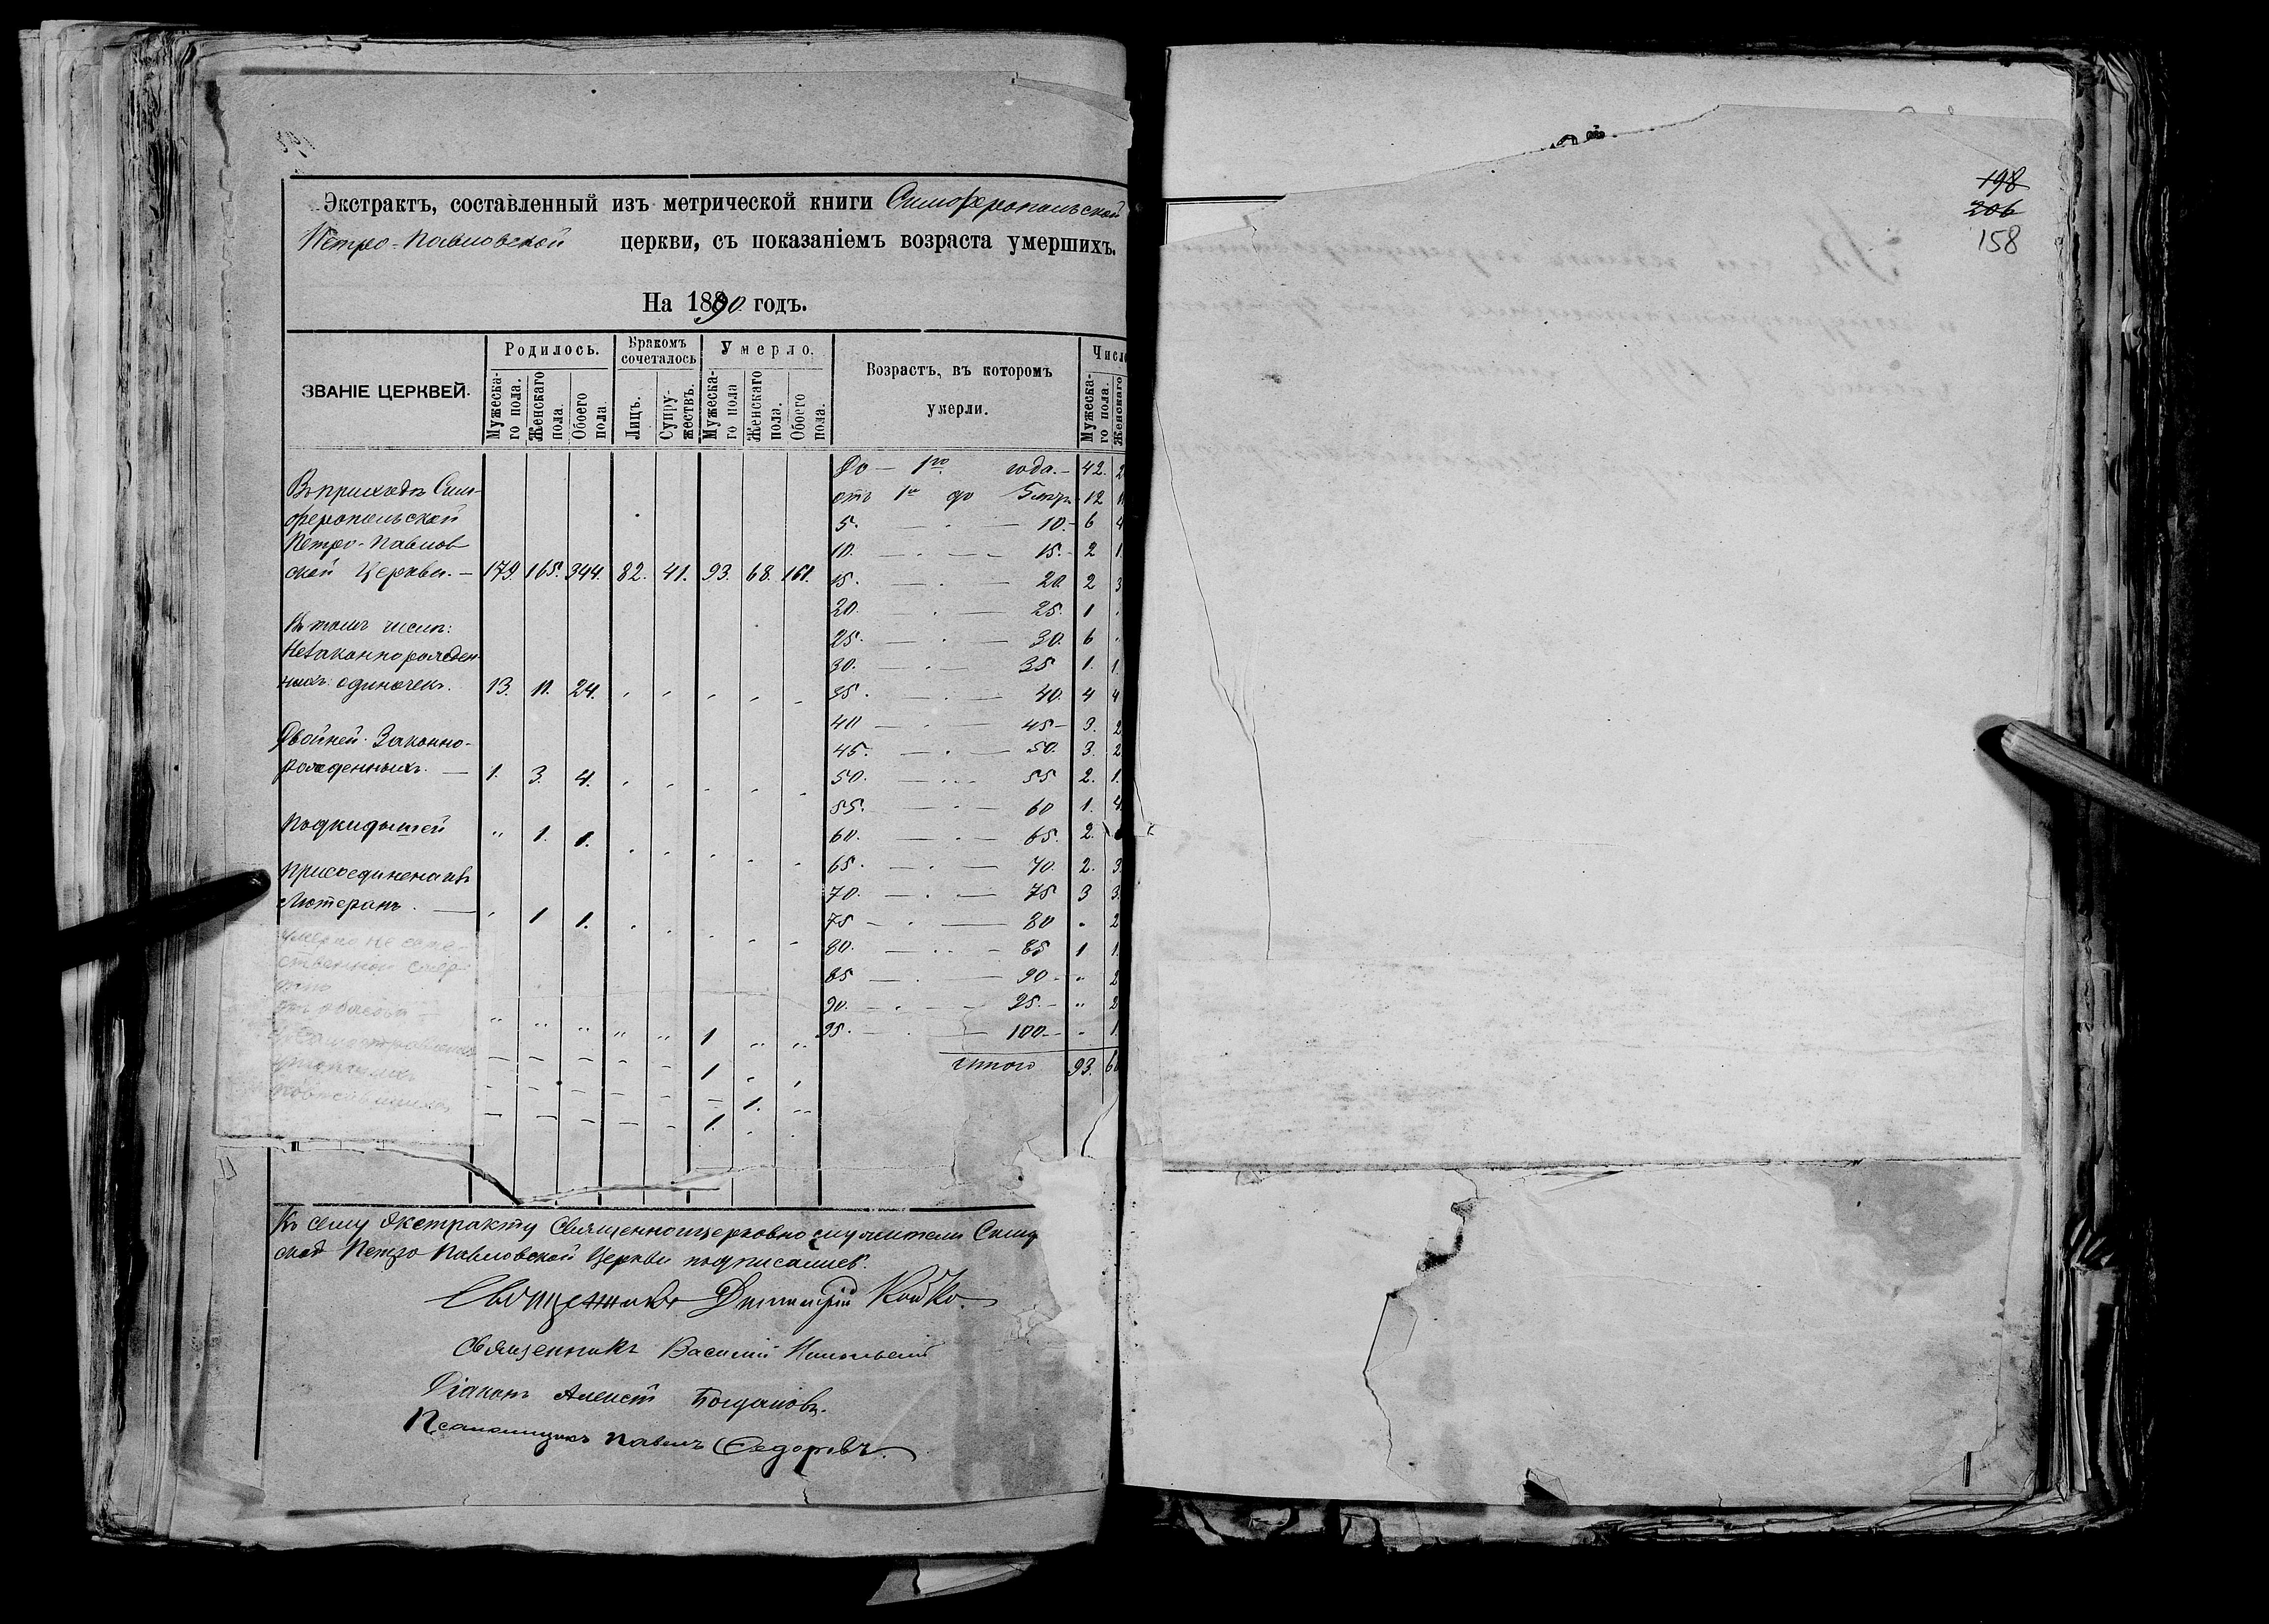 Экстрактъ, составленный изъ метрической книги Симферопольской
Петро-Павловской церкви, съ показаніемъ возраста умершихъ.
На 1890 годъ.
ЗВАНІЕ ЦЕРКВЕЙ.
Родилось.
Мужеска-го пола.
Женскаго пола.
Обоего пола.
Бракомъ сочеталось
Лицъ.
Супру-жествъ.
Умерло.
Мужеска-го пола
Женскаго пола.
Обоего пола.
Возрастъ, въ которомъ
умерли.
Мужеска-го пола.
Женскаго
Въ приходѣ Сим-
феропольской
Петро-Павлов
ской Церкви. — 179. 165. 344. 82. 41. 93. 68. 161.
Въ томъ числѣ:
Незаконнорожден-
ныхъ одиночекъ. 13. 11. 24.
Двойней Законно-
рожденныхъ. — 1. 3. 4.
Подкидышей " 1. 1.
Присоединена изъ
Лютеранъ. — 1 1.
умерло не есте-
ственной смер-
тію
До — 1го года. — 42. 2
отъ 1 до 5 — 12
5. — 10. — 6 4
10. — 15. — 2 1.
15. — 20 2 3
20. — 25. 1
25. — 30. 6
30. — 35 1. 1.
35. — 40. 4 4
40 — 45 — 3. 2
45. — 50. 3. 2
50. — 55 2. 1.
55. — 60 1. 4.
60. — 65. 2.
65. — 70. 2. 3.
70. — 75 3 3.
75 — 80 " 2
80. — 85 1 1.
85 — 90 — " 2
90. — 95. — " 2
95. — 100 — " 1.
Итого 93. 6
Къ сему Экстракту Священноцерковнослужители
ской Петро Павловской Церкви подписались:
Священникъ Димитрій Койко.
Священникъ Василій
Діаконъ Алексѣй Богдановъ.
Псаломщикъ Павелъ Федоровъ.
198
206
158